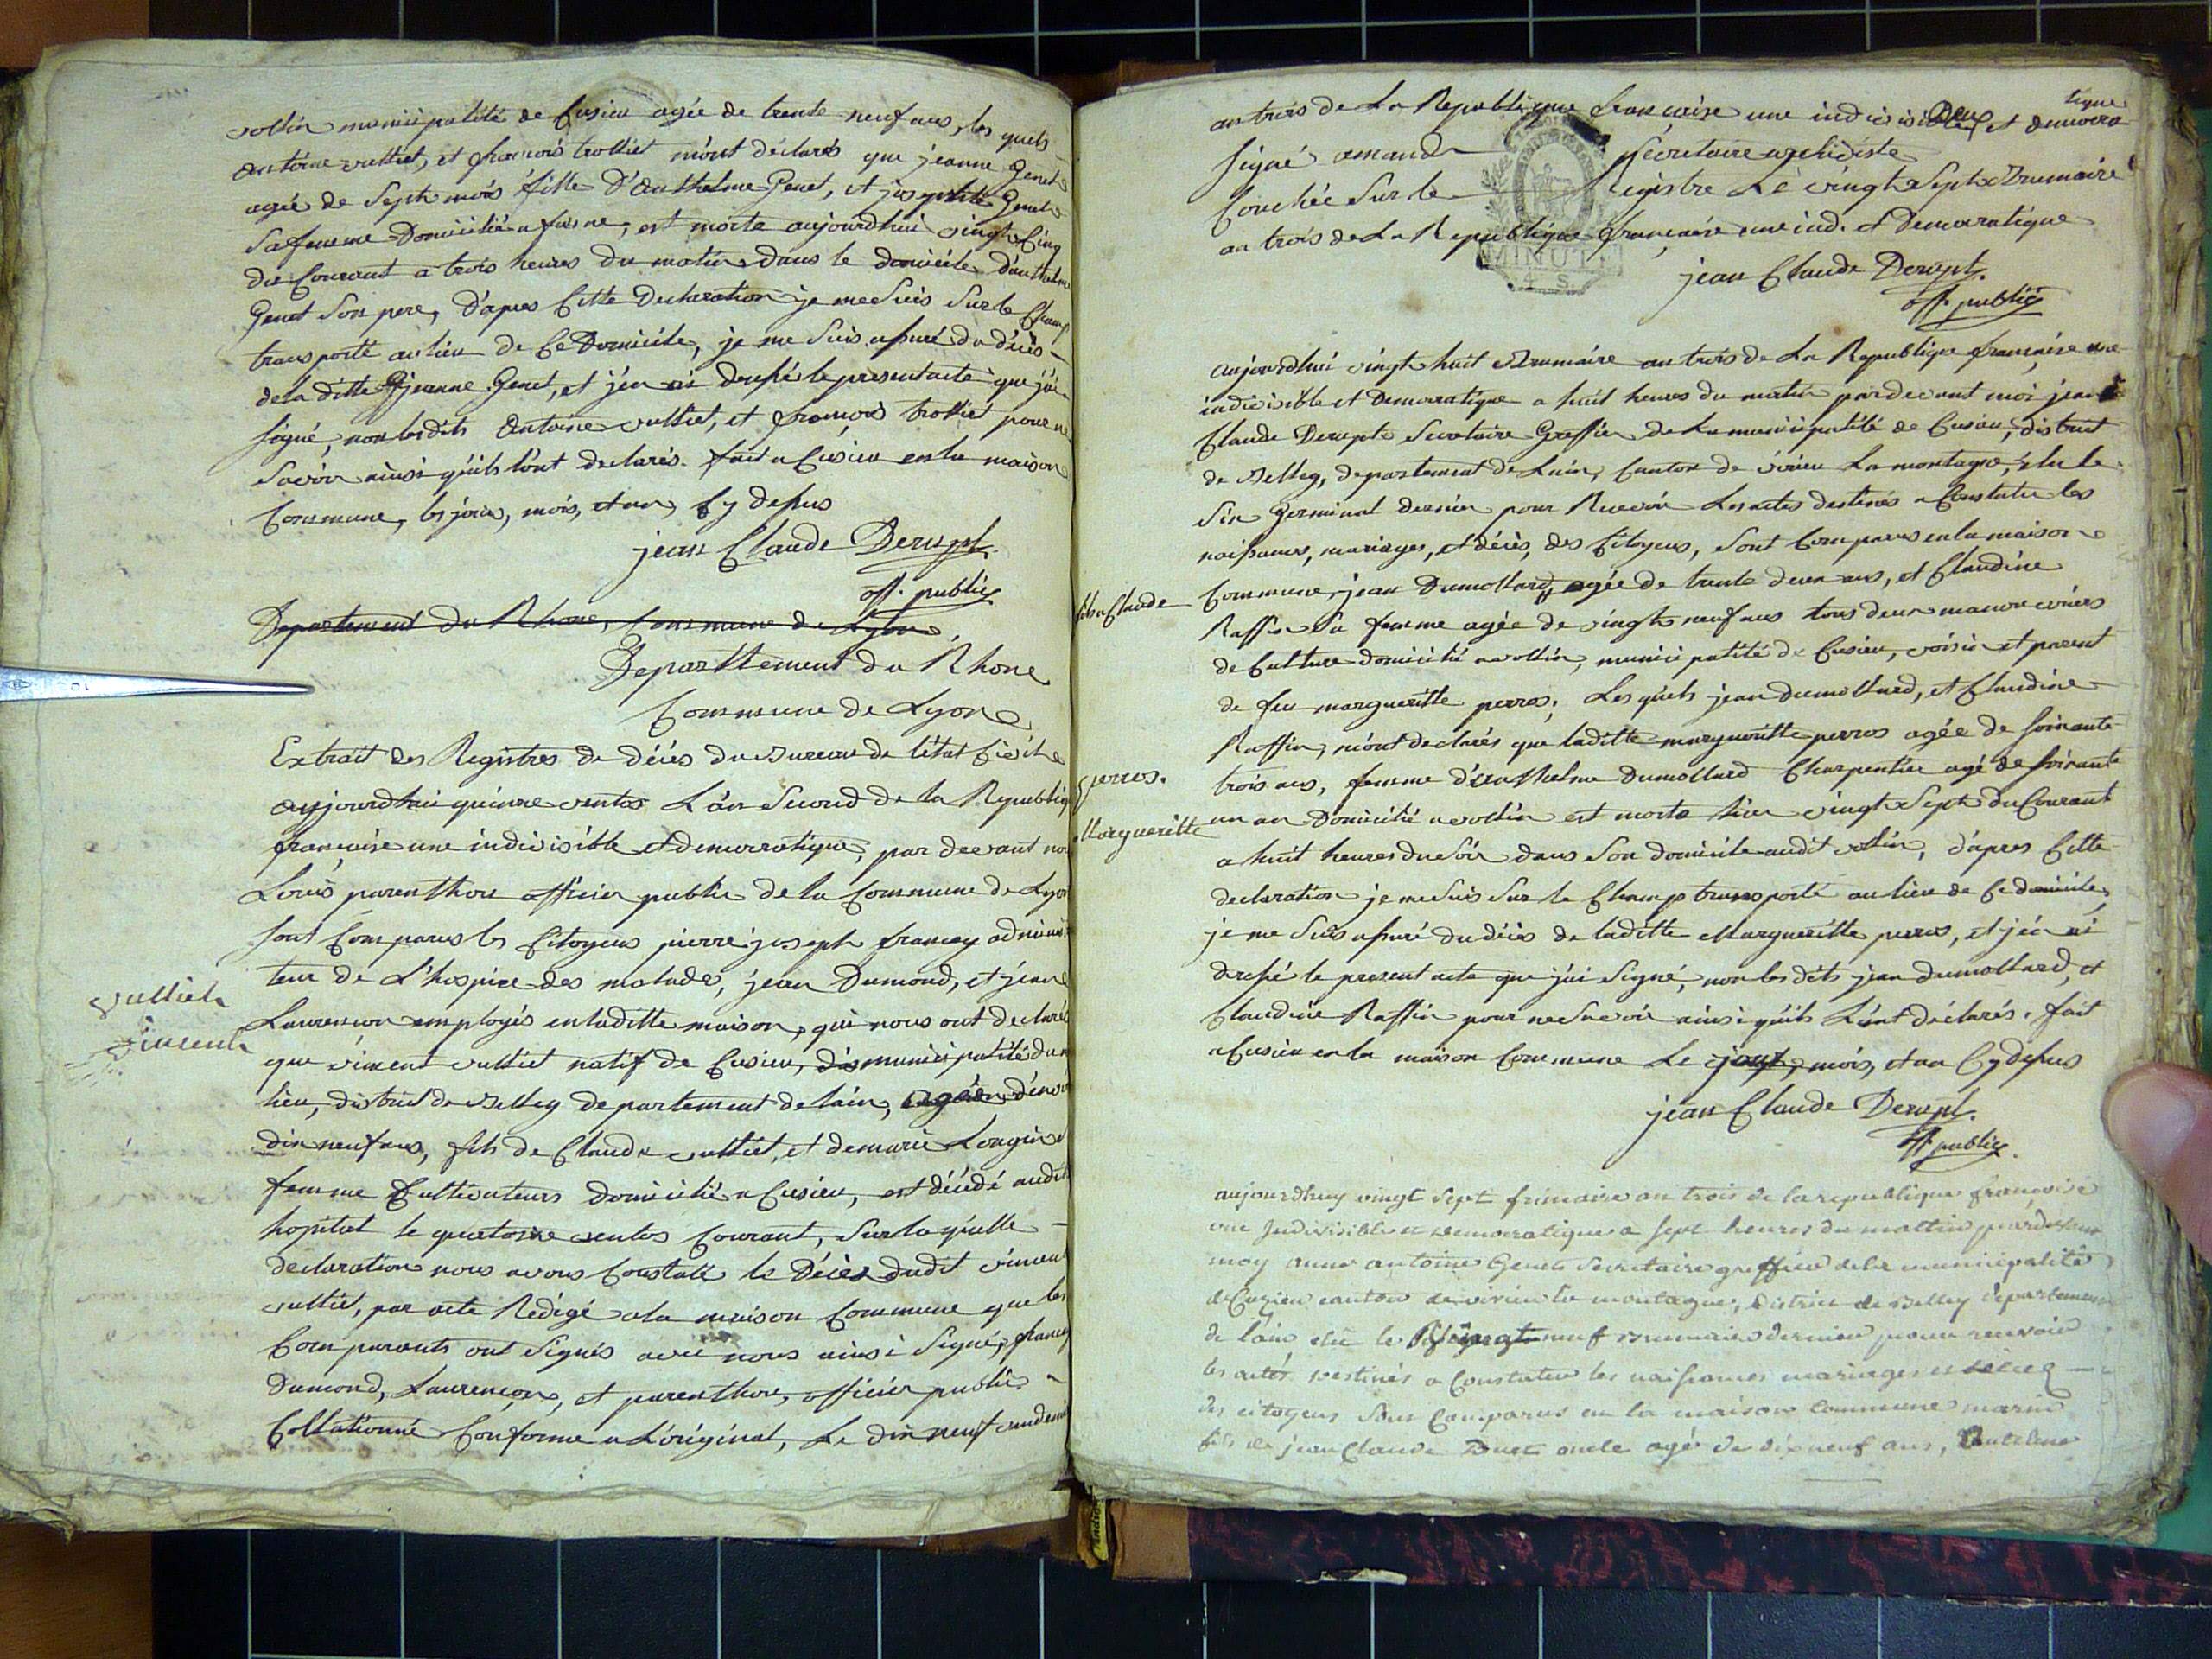 vollin municipalité de Cusieu agée de trente neuf ans, les quels
antoine vulliet, et françois trolliet m'ont déclarés que jeanne Genet
agée de Sept mois fille D'anthelme Genet, et josephte Genet
Sa femme Domicilié a fusne, est morte aujourdhui vingt Cinq
du Courant a trois heures du matin dans le domicile d'anthelme
Genet Son pere, D'apres Cette Declaration je me Suis Sur le Champ
transporté au lieu de Ce Domicile, je me Suis assuré du décès
de la ditte jeanne Genet, et j'en ai dressé le present acte que j'ai
signé, non lesdits Antoine vulliet, et françois trolliet pour ne
Savoir ainsi qu'ils l'ont declarés. fait a Cusieu en la maison
Commune, les jours, mois, et an, Cy dessus
jean Claude Derupt.
off. public
Departement du Rhone, Commune de Lyon
Departtement du Rhone
Commune de Lyon
Extrait des Registres de décès du Bureau de l'état Civil
aujourdhui quinze ventos L'an Second de la Republiq
françaisse une indivisible et democratique, par devant nou
Louis parenthou officier public de la Commune de Lyon
sont Comparus les Citoyens pierre joseph francey administ
teur de L'hospice des malades, jean Dumond, et jean
Laurençon employés en laditte maison, qui nous ont declaré
vulliet
vincent
que vincent vulliet natif de Cusieu, municipalité du
lieu, district de Belley departement de lain, agé d'env
dix neuf ans, fils de Claude vulliet, et de marie Longin
femme Cultivateurs Domicilié a Cusieu, est décédé audit
hopital le quatorze ventos Courant, Sur laquelle
declaration nous avons Constaté le Décès dudit vincent
vulliet, par acte Rédigé a la maison Commune que les
Comparants ont Signés avec nous ainsi Signé, francey
Dumond, Laurençon, et parenthou, officier public
Collationné Conforme a L'original, Le dix neuf vendem
an trois de La Republique françaisse une indivisible et democra
tique
signé amand Secretaire
Couchée Sur le Registre Le vingt Sept Brumaire
an trois de La Republique françaisse une ind. et Democratique
MINUT
jean Claude Derupt.
off. public
aujourdhui vingt huit Brumaire an trois de La Republique françaisse une
indivisible et Democratique a huit heures du matin pardevant moi jean
Claude Derupt Secretaire Greffier de La municipalité de Cusieu, district
de Belley, departement de Lain, Canton de virieu La montagne, elu le
Six Germinal dernier pour Recevoir Les actes destinés a Constater les
naissances, mariages, et décès, des Citoyens, Sont Comparus en la maison
Commune, jean Dumollard agée de trente deux ans, et Claudine
Raffin Sa femme agée de vingt neuf ans tous deux manouvriers
de Culture domicilié a vollin, municipalité de Cusieu, voisin et parent
de feu margueritte perros, Lesquels jean dumollard, et Claudine
Raffin, m'ont declarés que laditte margueritte perros agée de soixante
perros.
Margueritte
trois ans, femme d'anthelme Dumollard Charpentier agé de soixante
un an Domicilié a vollin est morte hier vingt Sept du Courant
a huit heures du Soir dans Son domicile audit vollin, d'apres Cette
declaration je me Suis Sur le Champ transporté au lieu de Ce domicile,
je me Suis assuré du décès de laditte Margueritte perros, et j'en ai
dressé le present acte que j'ai Signé, non les dits jean dumollard, et
Claudine Raffin pour ne Savoir ainsi qu'ils L'ont déclarés. fait
a Cusieu en la maison Commune Le jour, mois, et an Cy dessus
jean Claude Derupt.
off. public.
aujourdhuy vingt sept frimaire an trois de la republique françoise
une Indivisible et democratique a sept heures du mattin pardevant
moy anne antoine Genet Secretaire greffier de la municipalité
de Cuzieu canton de virieu la montagne, district de Belley departement
de lain, elu le vingt neuf Brumaire dernier pour recevoir
les actes destinés a Constater les naissances mariages et décés
des citoyens Sont Comparus en la maison Commune marin
fils de jean Claude oncle agé de dix neuf ans, Antelme